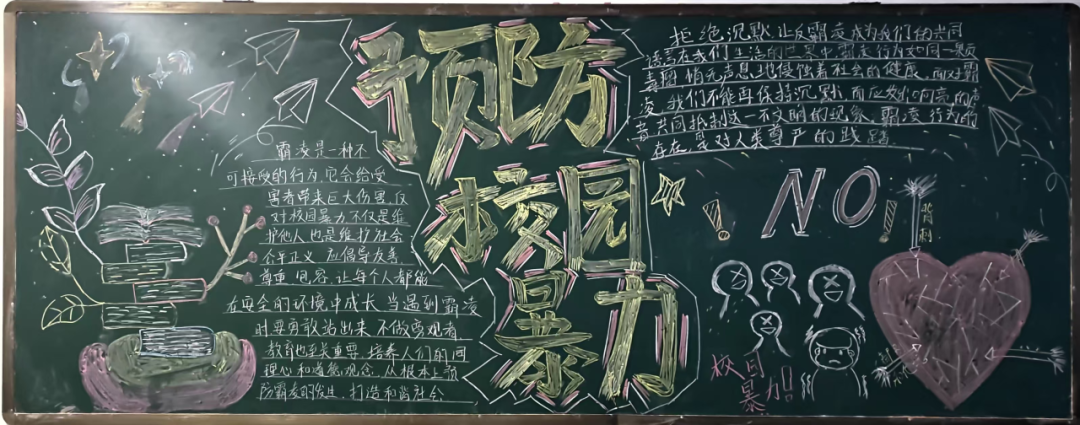 霸凌是一种不
可接受的行为,它会给受
害者带来巨大伤害,反
对校园暴力不仅是维
护他人也是维护社会
公平正义 应倡导友善
尊重 包容 让每个人都能
在安全的环境中成长 当遇到霸凌
时要勇敢站出来 不做旁观者
教育也至关重要,培养人们的同
理心和道德观念,从根本上预
防霸凌的发生,打造和谐社会
预防
校园
暴力
拒绝沉默,让反霸凌成为我们的共同
在我们生活的世界中,霸凌行为如同一颗
毒瘤 悄无声息地侵蚀着社会的健康,而对于霸
凌,我们不能再保持沉默,而应如同
共同抵制这一不文明的现象,霸凌行为的
存在,是对人类尊严的践踏
! NO!
背刺
校园
暴力!!